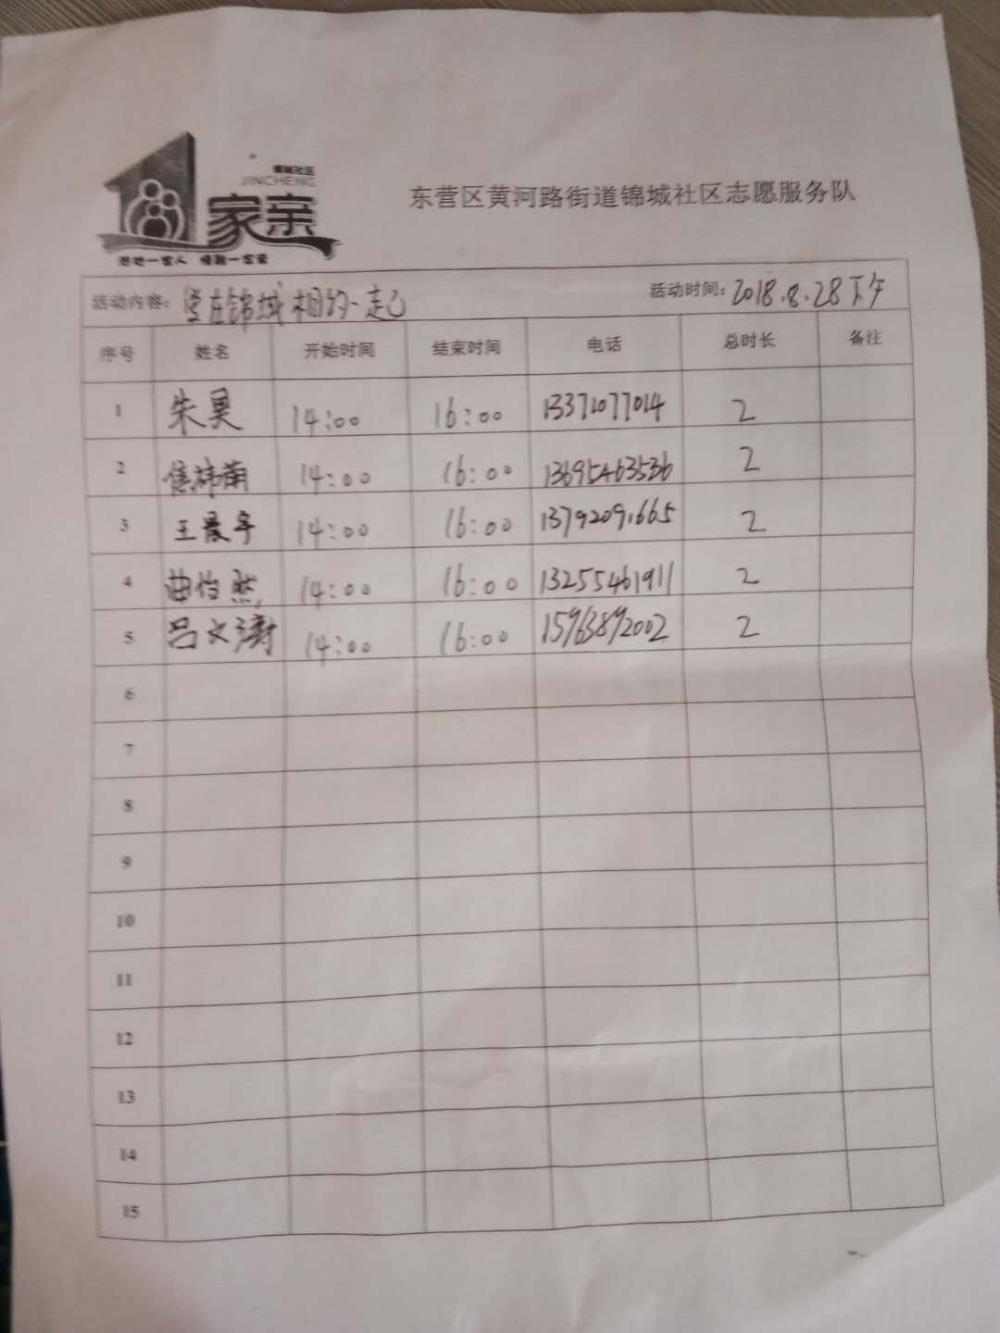 锦城社区
JINCHENG
家亲
东营区黄河路街道锦城社区志愿服务队
活动内容：爱在锦城 相约一起 活动时间：2018.8.28下午
序号 姓名 开始时间 结束时间 电话 总时长 备注
1 朱昊 14:00 16:00 13371077014 2
2 14:00 16:00 13695463536 2
3 王晨宇 14:00 16:00 13792091665 2
4 曲怡然 14:00 16:00 13255461911 2
5 吕文涛 14:00 16:00 15963892002 2
6
7
8
9
10
11
12
13
14
15